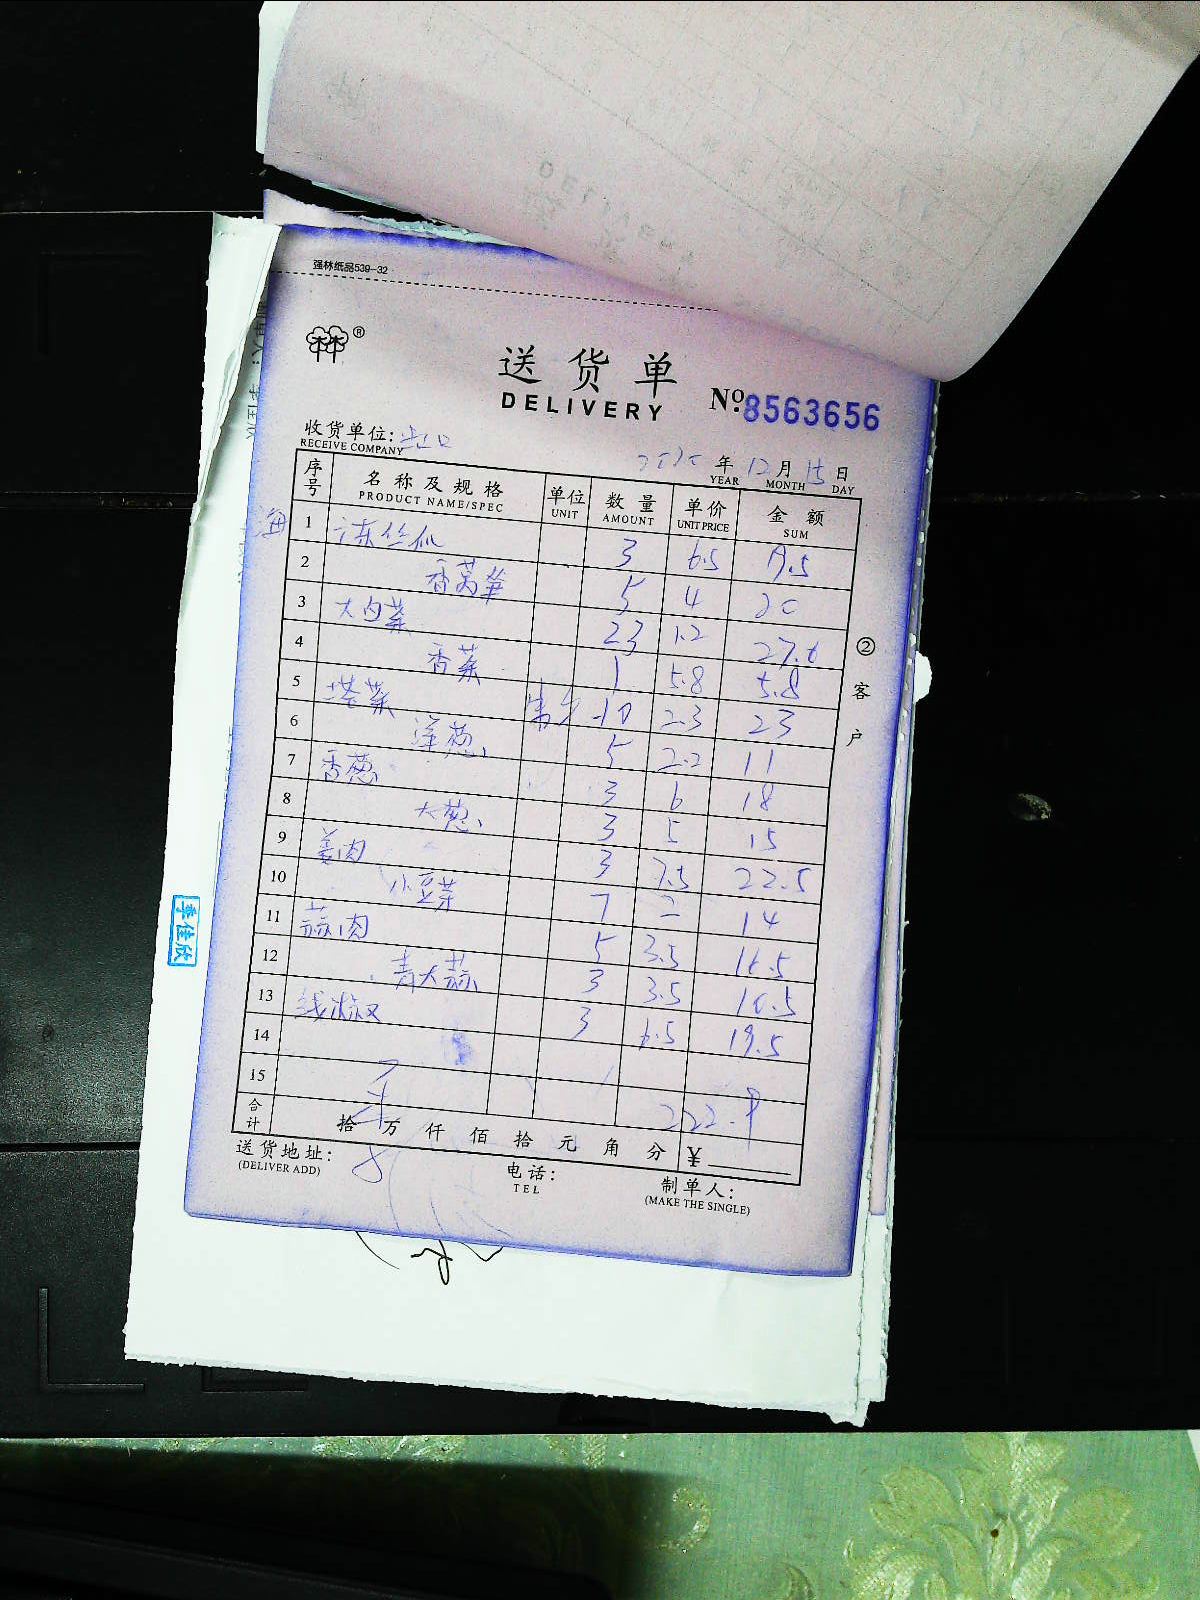 强林纸品539-32
林®
送货单
DELIVERY
№:8563656
收货单位:
RECEIVE COMPANY
年 12月 15日
YEAR MONTH DAY
序号 名称及规格 单位 数量 单价 金额
PRODUCT NAME/SPEC UNIT AMOUNT UNIT PRICE SUM
1 冻丝瓜 3 6.5 19.5
2 香莴笋 5 4 20
3 大白菜 23 1.2 27.6
4 香菜 1 5.8 5.8
5 塔菜 10 2.3 23
6 洋葱 5 2.2 11
7 香葱 3 6 18
8 大葱 3 5 15
9 姜肉 3 7.5 22.5
10 小豆芽 7 2 14
11 蒜肉 5 3.5
12 青大蒜 3 3.5 10.5
13 线椒 3 6.5 19.5
14
15
222.9
合计 拾 万 仟 佰 拾 元 角 分 ¥
送货地址:
(DELIVER ADD)
电话:
TEL
制单人:
(MAKE THE SINGLE)
②客户
李佳欣